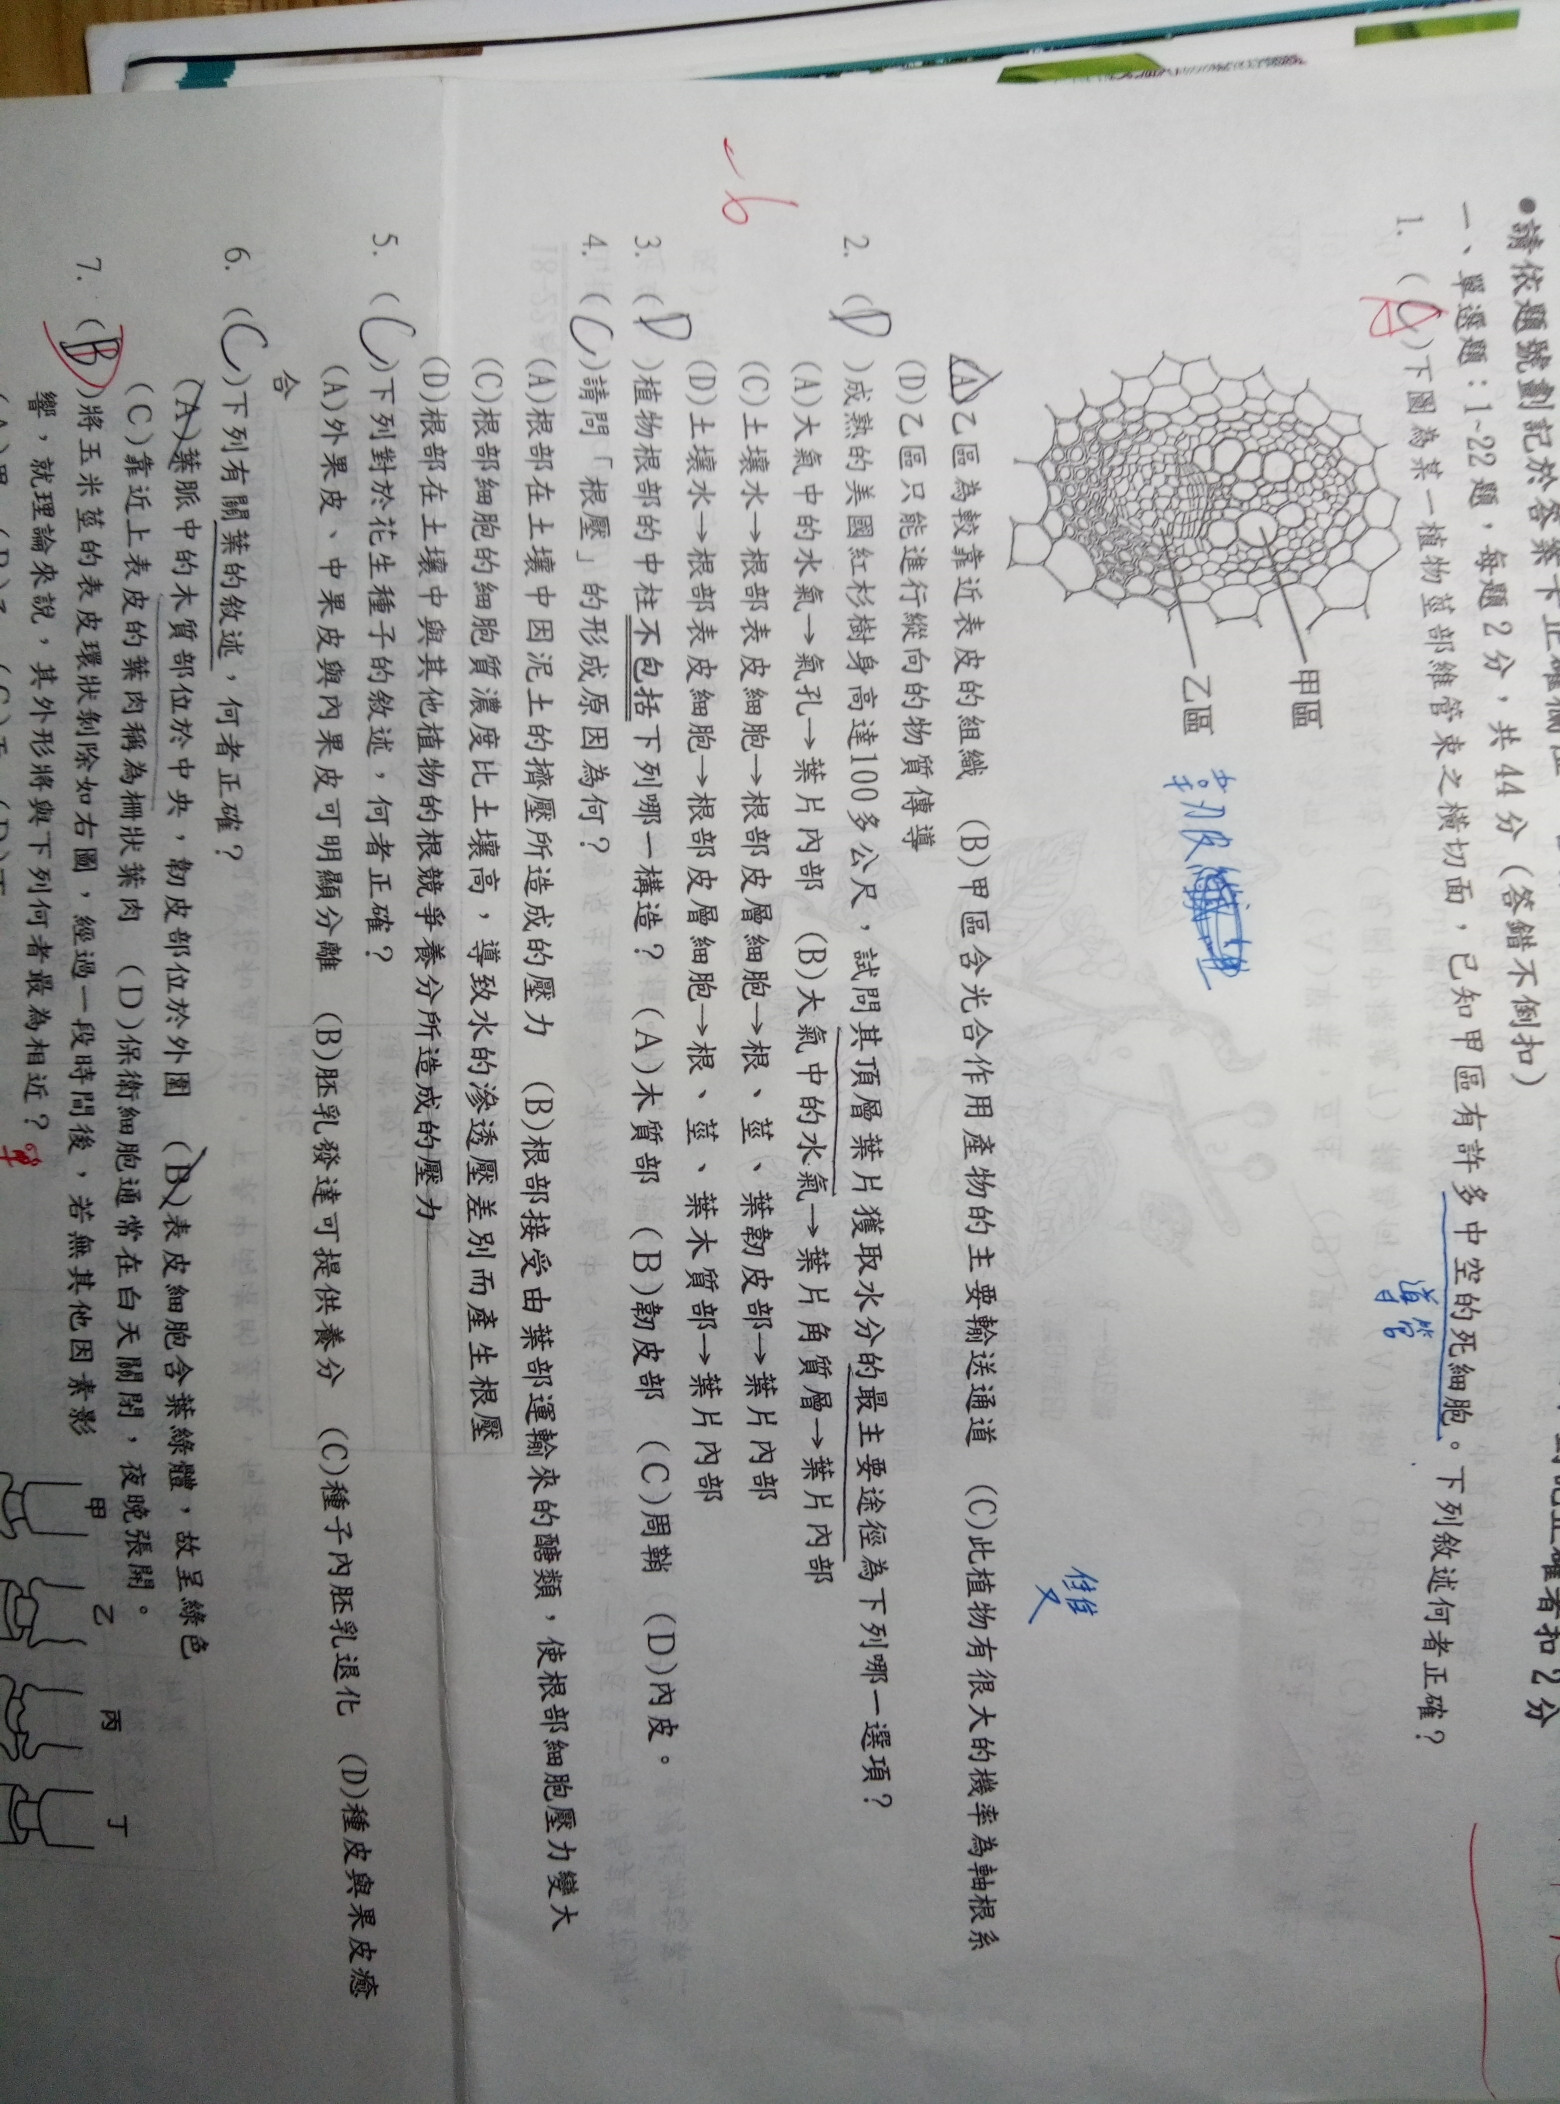 ●請依題號劃記於答案卡正確
一、單選題：1~22題，每題2分，共44分（答錯不倒扣）
1. (C) A 下圖為某一植物莖部維管束之橫切面，已知甲區有許多中空的死細胞。下列敘述何者正確？
導管
甲區
乙區
韌皮
雙
(A)乙區為較靠近表皮的組織 (B)甲區含光合作用產物的主要輸送通道 (C)此植物有很大的機率為軸根系
(D)乙區只能進行縱向的物質傳導
2. (D)成熟的美國紅杉樹身高達100多公尺，試問其頂層葉片獲取水分的最主要途徑為下列哪一選項？
(A)大氣中的水氣→氣孔→葉片內部 (B)大氣中的水氣→葉片角質層→葉片內部
(C)土壤水→根部表皮細胞→根部皮層細胞→根、莖、葉韌皮部→葉片內部
(D)土壤水→根部表皮細胞→根部皮層細胞→根、莖、葉木質部→葉片內部
-6
3. (D)植物根部的中柱不包括下列哪一構造？ (A)木質部 (B)韌皮部 (C)周鞘 (D)內皮。
4. (C)請問「根壓」的形成原因為何？
(A)根部在土壤中因泥土的擠壓所造成的壓力 (B)根部接受由葉部運輸來的醣類，使根部細胞壓力變大
(C)根部細胞的細胞質濃度比土壤高，導致水的滲透壓差別而產生根壓
(D)根部在土壤中與其他植物的根競爭養分所造成的壓力
5. (C)下列對於花生種子的敘述，何者正確？
(A)外果皮、中果皮與內果皮可明顯分離 (B)胚乳發達可提供養分 (C)種子內胚乳退化 (D)種皮與果皮癒
合
6. (C)下列有關葉的敘述，何者正確？
(A)葉脈中的木質部位於中央，韌皮部位於外圍 (B)表皮細胞含葉綠體，故呈綠色
(C)靠近上表皮的葉肉稱為柵狀葉肉 (D)保衛細胞通常在白天關閉，夜晚張開。
7. (B)將玉米莖的表皮環狀剝除如右圖，經過一段時間後，若無其他因素影
響，就理論來說，其外形將與下列何者最為相近？
甲 乙 丙 丁